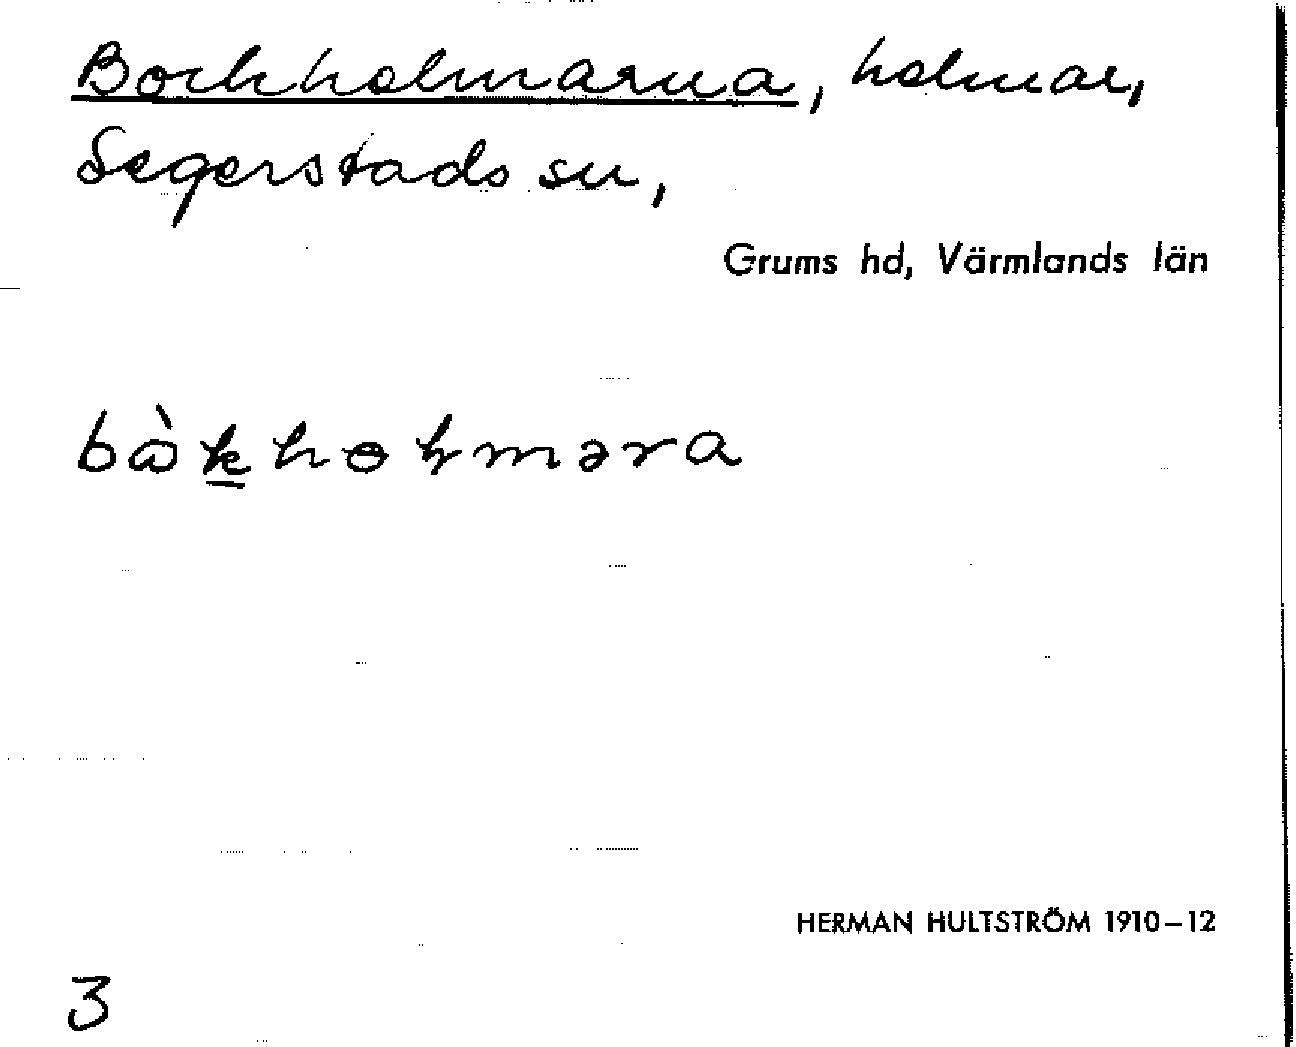 Bockholmarna, holmar,
Segerstads sn,
Grums hd, Värmlands län
bὼkhɵɽməra
HERMAN HULTSTRÖM 1910–12
3